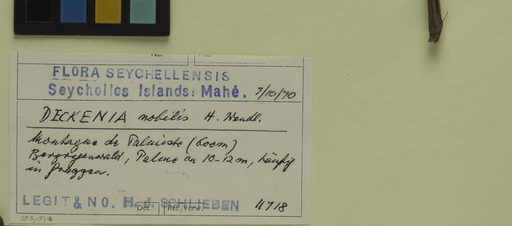 FLORA SEYCHELLENSIS
Seychelles Islands: Mahé. 7/10/70
DECKENIA nobilis H. Wendl.
Montagne de Palmiste (600m)
Bergregenwald, Palme an 10-12m, häufig
in Gruppen.
LEGIT & NO. H. J. SCHLIEBEN 11718
Det. Ref./Verw.